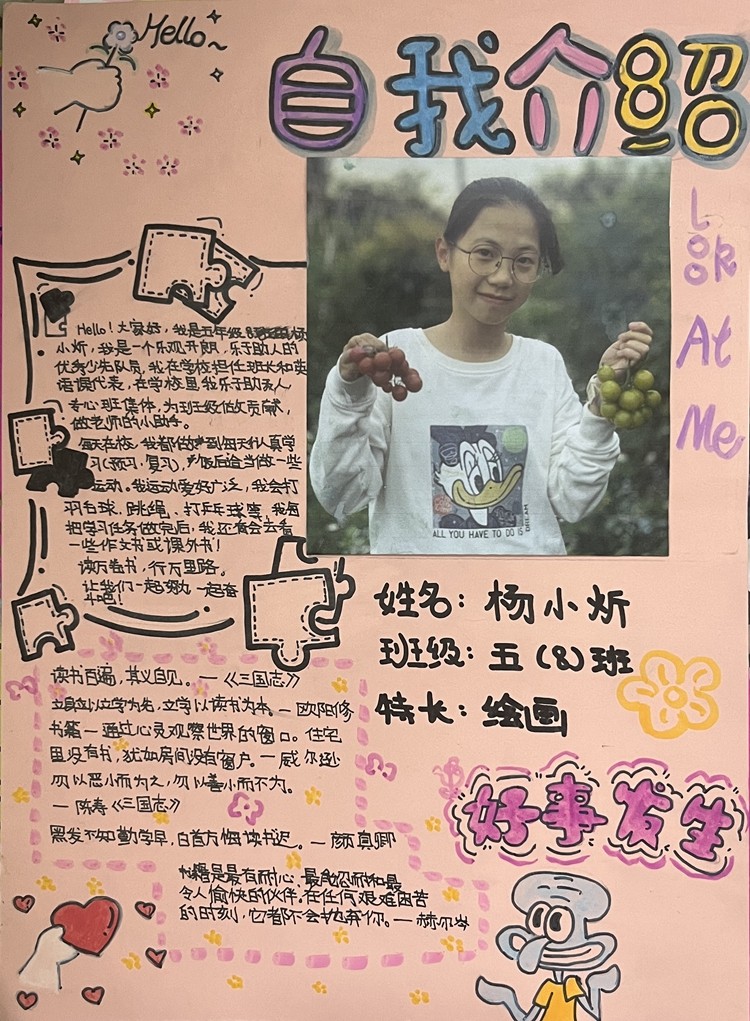 Hello~
自我介绍
Look At Me
Hello! 大家好,我是五年级8班的杨
小炘,我是一个乐观开朗,乐于助人的
优秀少先队员,我在学校担任班长和英
语课代表,在学校里我乐于助人
专心班集体,为班级做出贡献,
做老师的小助手。
每天在校,我都做到每天认真学
习(预习、复习),饭后会当做一些
运动。我运动爱好广泛,我会打
羽毛球、跳绳、打乒乓球等,我每
把学习任务做完后,我还有会去看
一些作文书或课外书!
读万卷书,行万里路。
让我们一起努力,一起奋
斗吧!
ALL YOU HAVE TO DO IS
DREAM
姓名:杨小炘
班级:五(8)班
特长:绘画
读书百遍,其义自见。—《三国志》
立身以立学为先,立学以读书为本。—欧阳修
书籍—通过心灵观察世界的窗口。住宅
里没有书,犹如房间没有窗户。—威尔逊
勿以恶小而为之,勿以善小而不为。
—陈寿《三国志》
黑发不知勤学早,白首方悔读书迟。—颜真卿
书籍是最有耐心、最能忍耐和最
令人愉快的伙伴。在任何艰难困苦
的时刻,它都不会抛弃你。—赫尔岑
好事发生